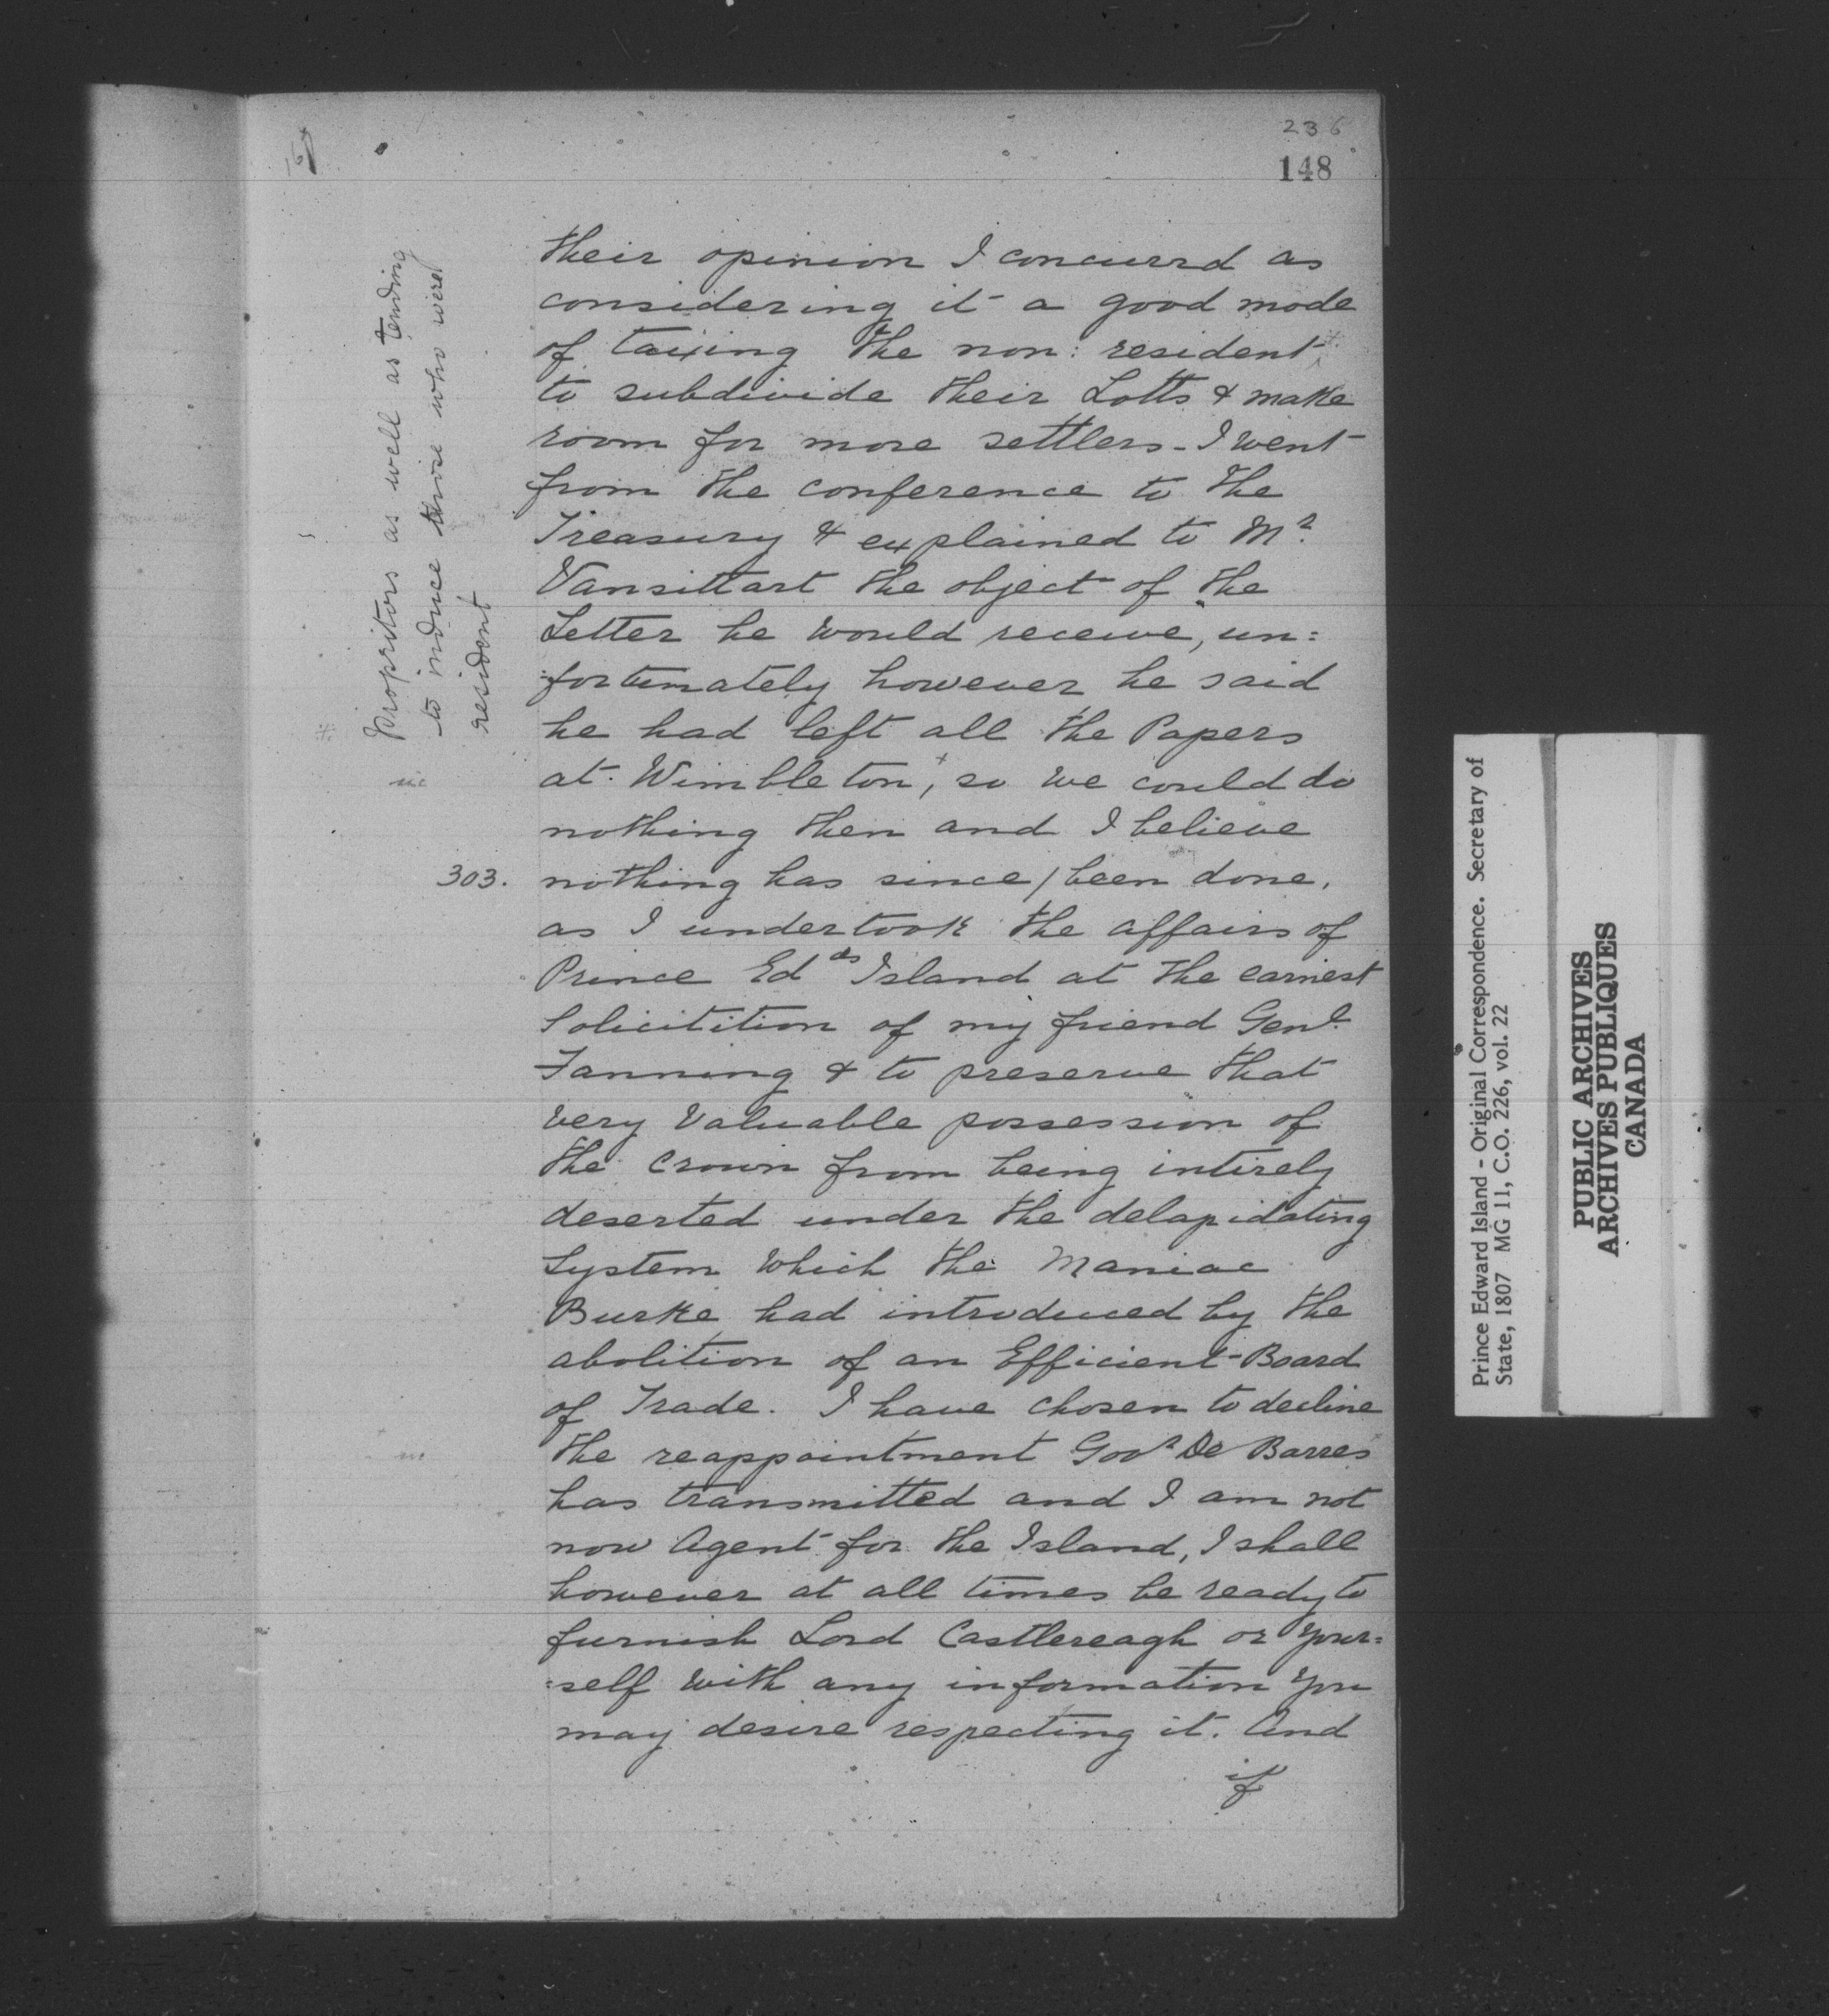 236
148
their opinion I concurrd as
considering it a good mode
of taixing the non: resident #
to subdivide their Lotts & make
room for more settlers - I went
from the conference to the
Treasury & explained to Mr.
Vansittart the object of the
Letter he would receive, un:
:fortunately however he said
he had left all the Papers
at Wimbleton +, so we could do
nothing then and I believe
303. nothing has since / been done,
as I undertook the affairs of
Prince Edds Island at the earnest
Solicitition of my friend Genl.
Fanning & to preserve that
very Valuable possession of
the Crown from being intirely
deserted under the delapidating
System which the Maniac
Burke had introduced by the
abolition of an Efficient Board
of Trade. I have chosen to decline
the reappointment Govr De Barres
has transmitted and I am not
now Agent for the Island, I shall
however at all times be ready to
furnish Lord Castlereagh or your=
=self with any information you
may desire respecting it. And
if
# Propritors as well as tending
to induce those who were
resident
Prince Edward Island - Original Correspondence. Secretary of
State, 1807 MG 11, C.O. 226, vol. 22
PUBLIC ARCHIVES
ARCHIVES PUBLIQUES
CANADA